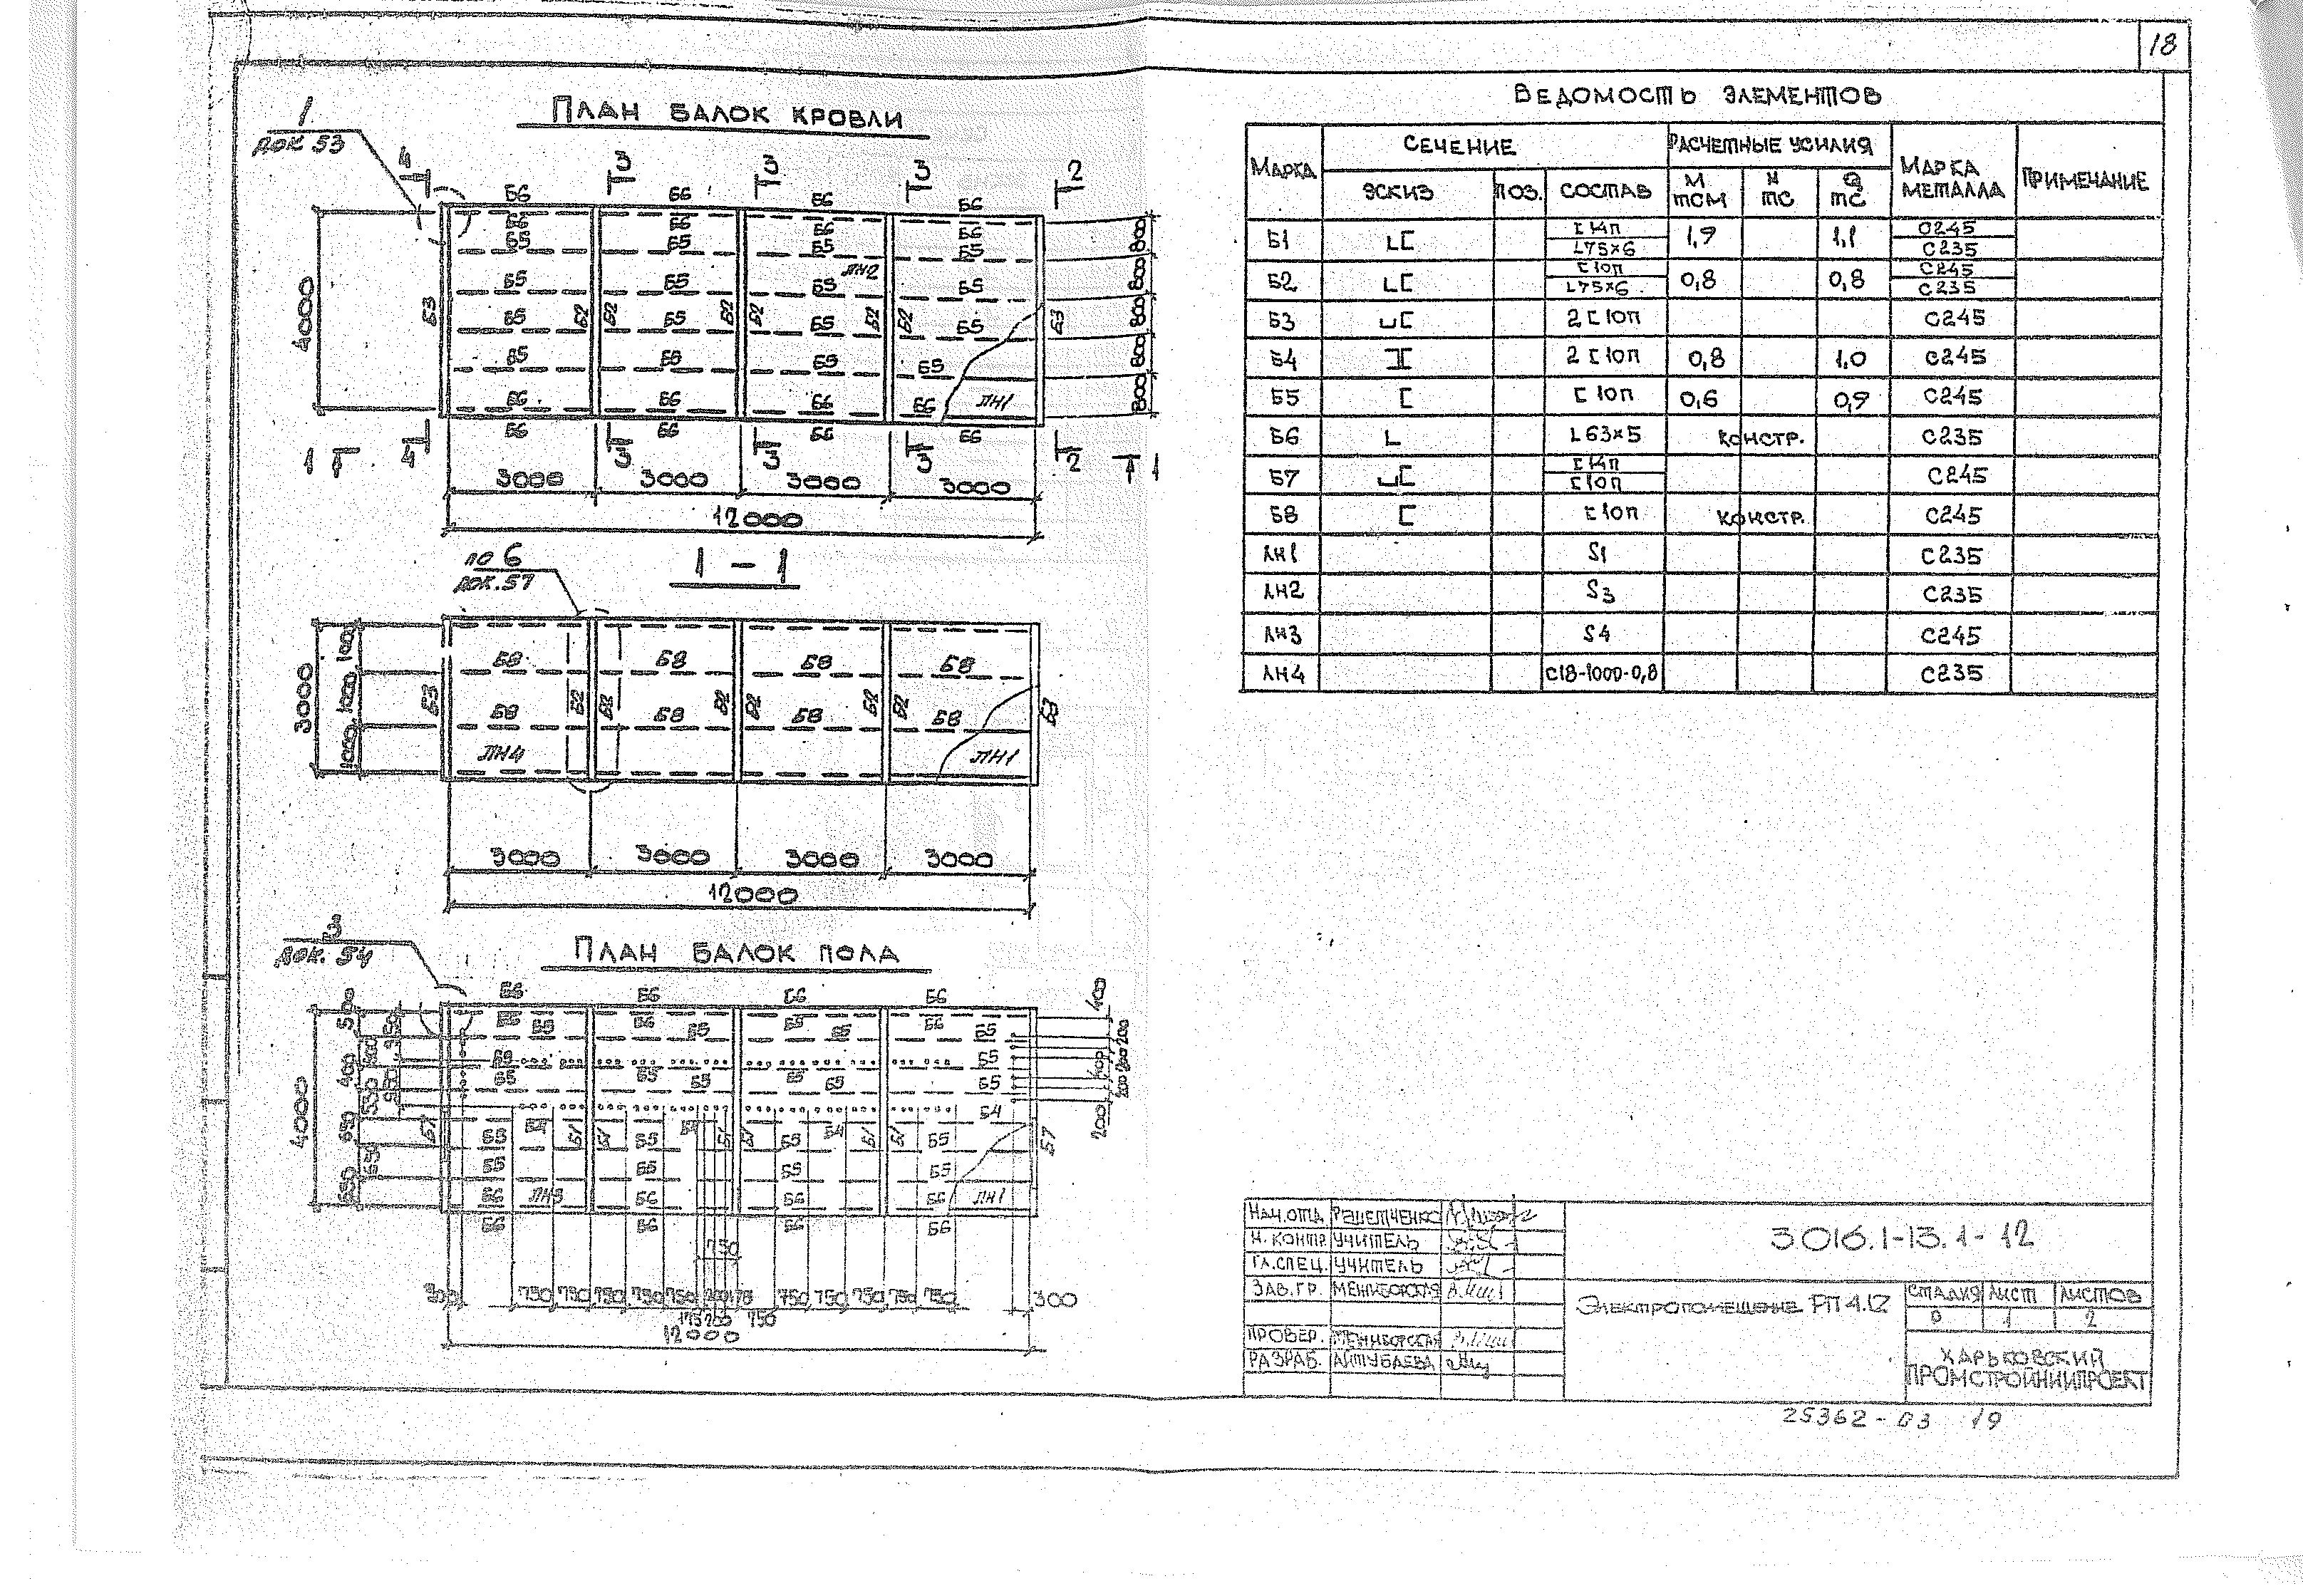 18
План балок кровли
1
док 53
4 3 3 3 2
Б6 Б6 Б6 Б6
Б6 Б6 Б6 Б6
Б5 Б5 Б5 Б5
ЛН2
Б5 Б5 Б5 Б5
Б3 Б2 Б2 Б2 Б2 Б2 Б2 Б3
Б5 Б5 Б5 Б5
Б5 Б5 Б5 Б5
Б6 Б6 Б6 Б6 ЛН1
Б6 Б6 Б6 Б6
4000
800 800 800 800 800
1 4 3 3 3 2 1
3000 3000 3000 3000
12000
по 6
док.57
1 - 1
Б8 Б8 Б8 Б8
Б3 Б2 Б2 Б2 Б2 Б2 Б2 Б3
Б8 Б8 Б8 Б8
ЛН4 ЛН1
3000
1000 1000 1000
3000 3000 3000 3000
12000
3
док. 54
План балок пола
Б6 Б6 Б6 Б6
Б6 Б5 Б6 Б5 Б5 Б5 Б6 Б5
Б5
Б5 Б5 Б5 Б5 Б5 Б5 Б5
Б4
Б7 Б1 Б1 Б1 Б1 Б1 Б1 Б7
Б5 Б5 Б5 Б5
Б5 Б5 Б5 Б5
Б6 ЛН3 Б6 Б6 Б6 ЛН1
Б6 Б6 Б6 Б6
4000
400
200
750
750 750 750 750 750 750 750 750 750 750 300
175 200 750
12000
Ведомость элементов
Марка Сечение Расчетные усилия Марка металла Примечание
эскиз поз. состав М тсм N тс Q тс
Б1 [ 14п L75×6 1,9 1,1 С245 С235
Б2 [ 10п L75×6 0,8 0,8 С245 С235
Б3 2 [ 10п С245
Б4 2 [ 10п 0,8 1,0 С245
Б5 [ 10п 0,6 0,9 С245
Б6 L 63×5 констр. С235
Б7 [ 14п [ 10п С245
Б8 [ 10п констр. С245
ЛН1 S1 С235
ЛН2 S3 С235
ЛН3 S4 С245
ЛН4 С18-1000-0,8 С235
Нач.отд. Решетченко
Н. контр. Учитель
Гл.спец. Учитель
Зав.гр. Меншборская
Провер. Меншборская
Разраб. Айтубаева
3.016.1-13.1-12
Электропомещение РП4.12
Стадия Лист Листов
Р 1 2
Харьковский
Промстройниипроект
25362-03 19